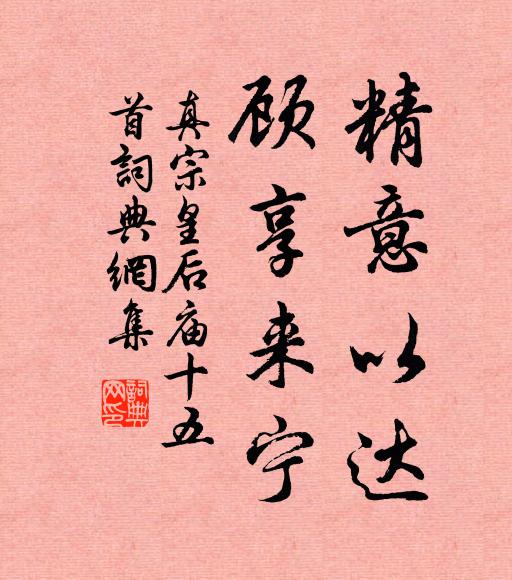 精意以达
顾享来宁
真宗皇后庙十五
首詞典網集
詞典
网印